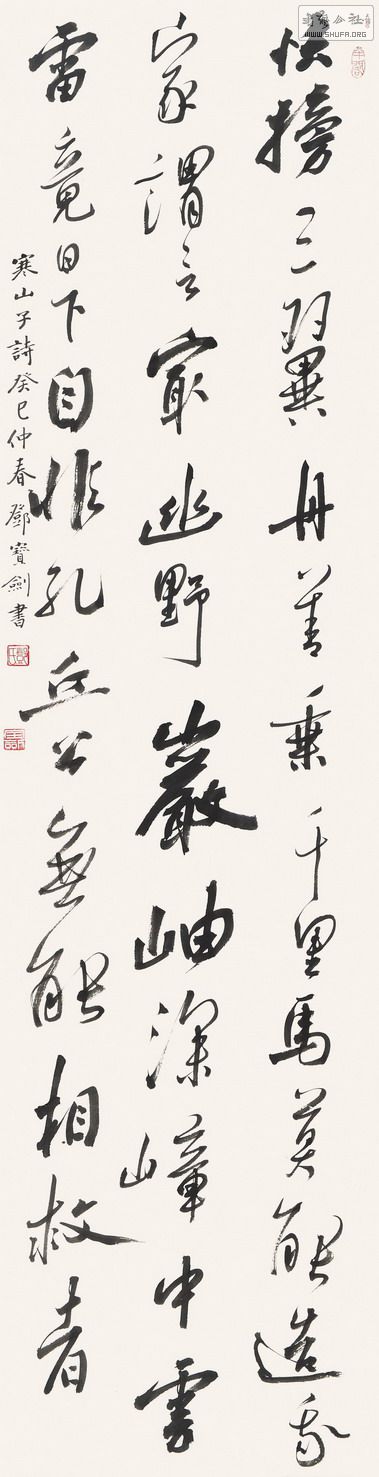 快搒三翼舟善乘千里馬莫能造我
家謂言最幽野巖岫深嶂中雲
雷竟日下自非孔丘公無能相救者
寒山子詩癸巳仲春鄧寶劍書
WWW.SHUFA.ORG